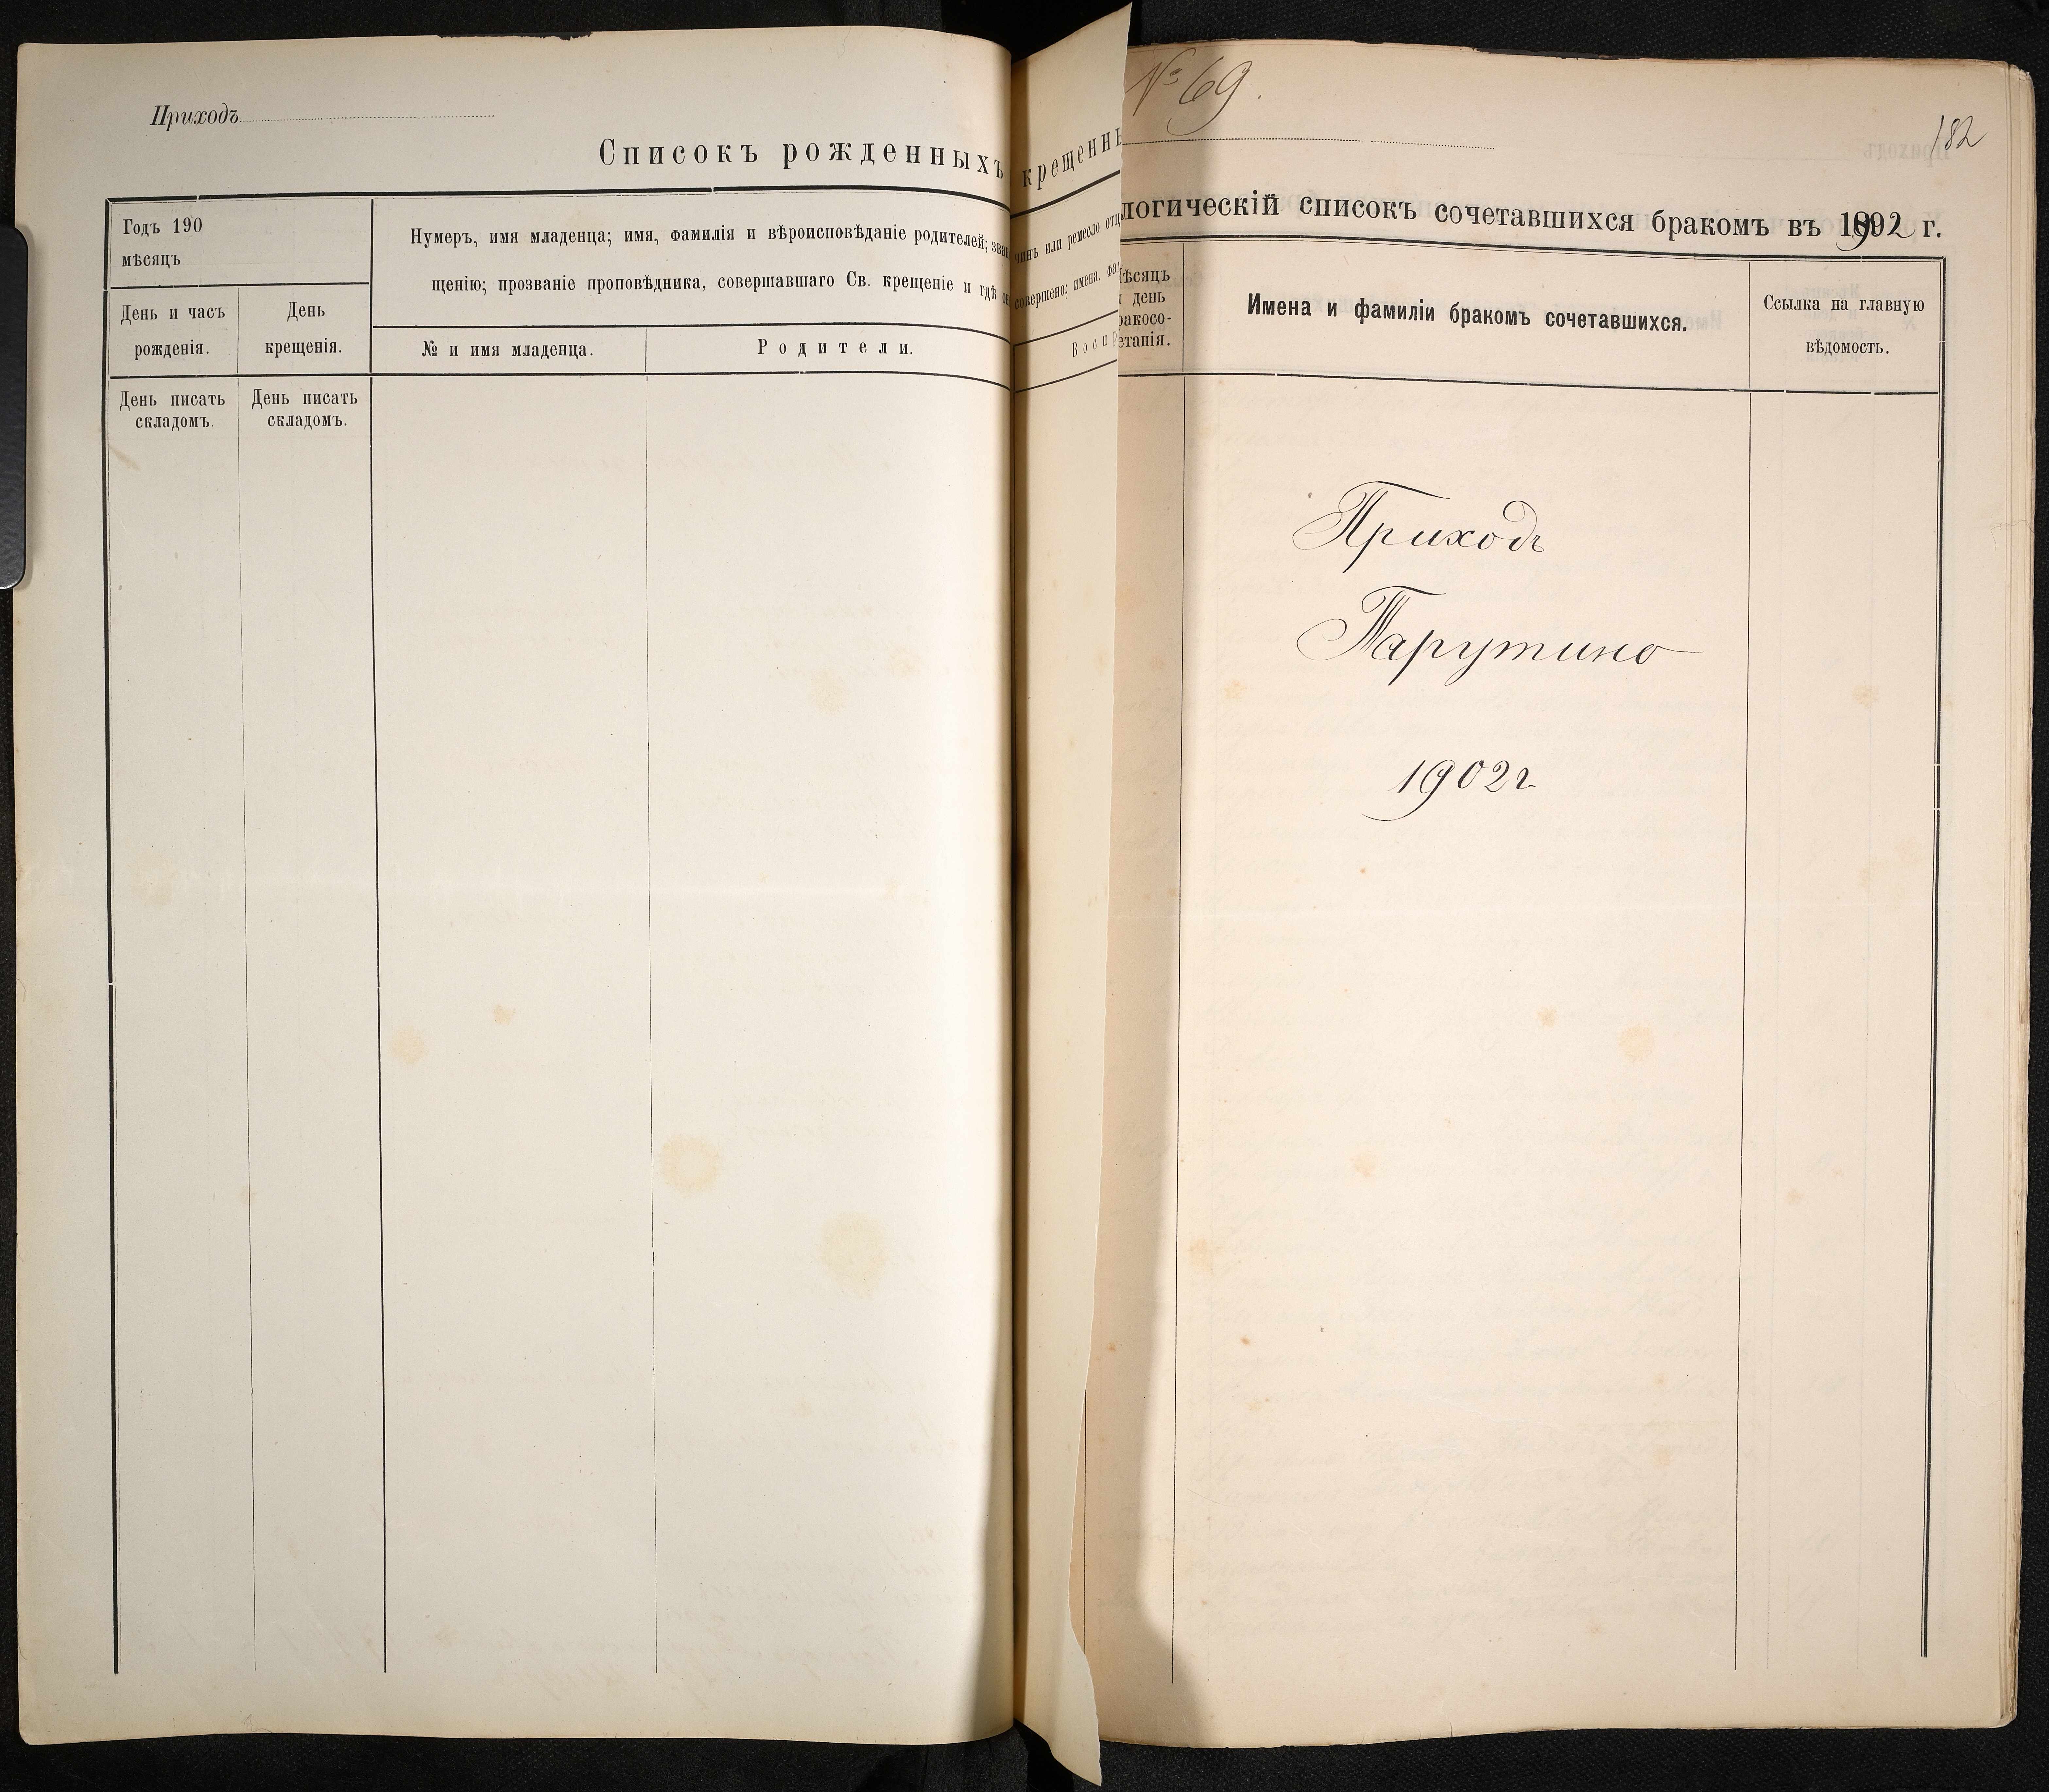 Приходъ
Списокъ рожденныхъ
крещенн
Годъ 190
мѣсяцъ
Нумеръ, имя младенца; имя, фамилія и вѣроисповѣданіе родителей; зва
щенію; прозваніе проповѣдника, совершавшаго Св. крещеніе и гдѣ
чинъ или ремесло отц
совершено; имена, фа
День и часъ рожденія.
День крещенія.
№ и имя младенца.
Родители.
Восп
День писать складомъ.
День писать складомъ.
№ 69.
182
логическій списокъ сочетавшихся бракомъ въ 1902 г.
ѣсяцъ
день
ракосо-
етанія.
Имена и фамиліи бракомъ сочетавшихся.
Ссылка на главную
вѣдомость.
Приходъ
Тарутино
1902 г.